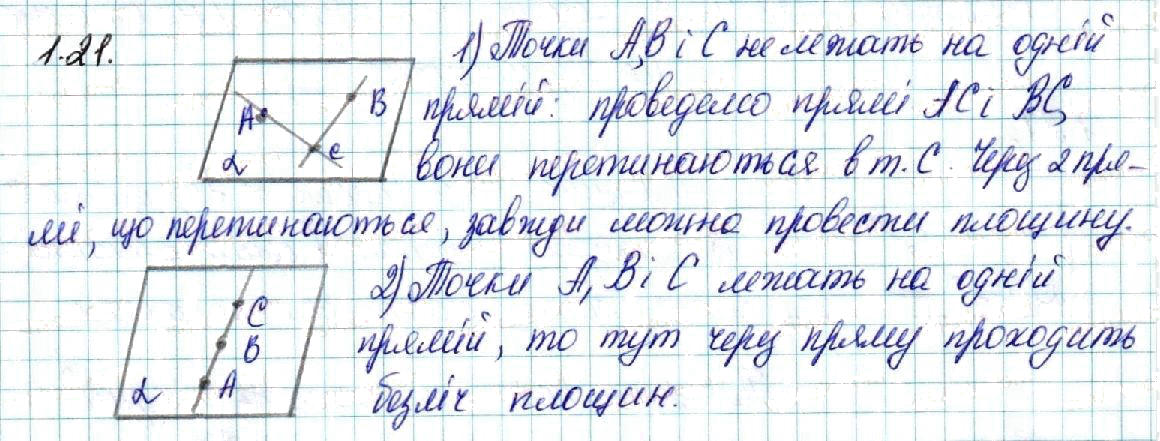 1.21.
1) Точки A, B і C не лежать на одній
прямій: проведемо прямі AC і BC,
вони перетинаються в т. C. Через 2 пря-
мі, що перетинаються, завжди можна провести площину.
A
B
C
α
2) Точки A, B і C лежать на одній
прямій, то тут через пряму проходить
безліч площин.
C
B
A
α